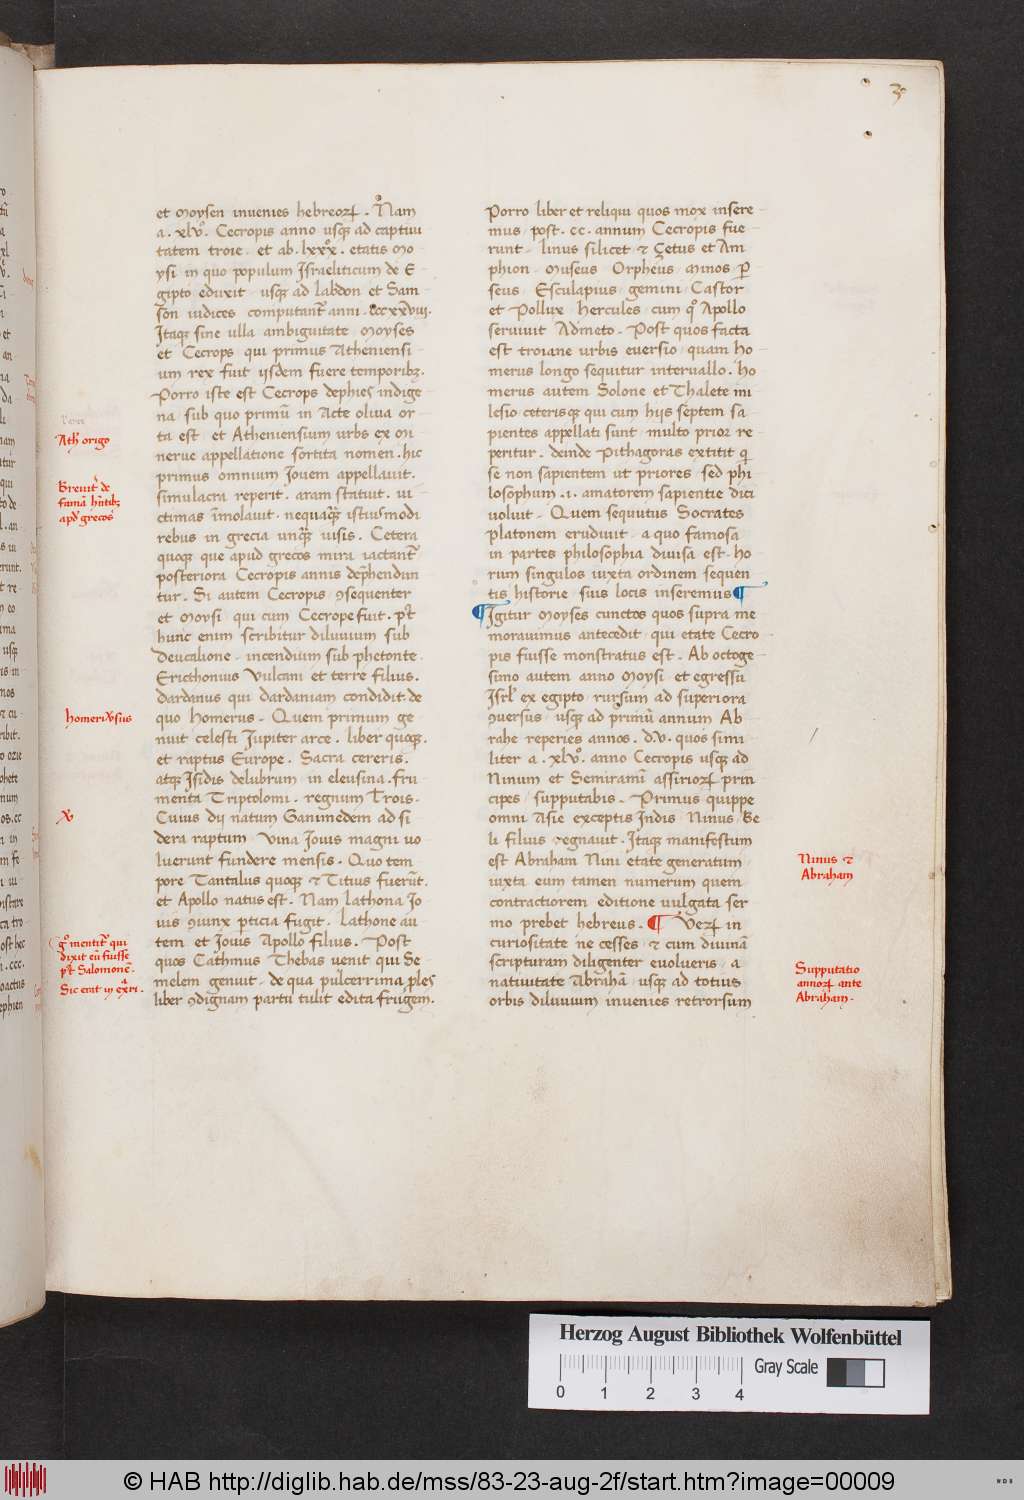 3
et Moysen invenies hebreoꝝ. Nam
a. xlvº. Cecropis anno usqꝫ ad captivi
tatem troie. et ab. lxxxº. etatis Mo
ysi in quo populum Israeliticum de E
gipto eduxit usqꝫ ad labdon et Sam
son iudices computant᷑ anni. ccc xxviii.
Itaqꝫ sine ulla ambiguitate Moyses
et Cecrops qui primus Atheniensi
um rex fuit ijsdem fuere temporibꝫ.
Porro iste est Cecrops dephies indige
na sub quo primū in Acte oliva or
ta est et Atheniensium urbs ex mi
nerve appellatione sortita nomen. hic
primus omnium Jovem appellavit.
simulacra reperit. aram statuit. vi
ctimas īmolavit. nequaqꝫ istiusmodi
rebus in grecia unqꝫ visis. Cetera
quoqꝫ que apud grecos mira iactant᷑
posteriora Cecropis annis dep̄hendun
tur. Si autem Cecropis ꝯsequenter
et Moysi qui cum Cecrope fuit. pt̄
hunc enim scribitur diluvium sub
Deucalione. incendium sub phetonte.
Ericthonius Vulcani et terre filius.
Dardanus qui dardaniam condidit. de
quo Homerus. Quem primum ge
nuit celesti Jupiter arce. liber quoqꝫ.
et raptus Europe. Sacra cereris.
atqꝫ Isidis delubrum in eleusina. fru
menta Triptolomi. regnum Trois.
Cuius dij natum Ganimedem ad si
dera raptum vina Jovis magni vo
luerunt fundere mensis. Quo tem
pore Tantalus quoqꝫ ⁊ Titius fuerūt.
et Apollo natus est. Nam lathona Jo
vis ꝯiunx pticia fugit. Lathone au
tem et Jovis Apollo filius. Post
quos Cathmus Thebas venit qui Se
melem genuit. de qua pulcerrima ples
liber ꝯdignam partu tulit edita frugem.
Ath origo
Brevit᷑ de
famā
apd̄ grecos
homeri v̄sus
gͦ mentit᷑ qui
dixit eū fuisse
pt̄ Salomonē.
Sic erat in exr̄i.
Porro liber et reliqui quos mox insere
mus post. cc. annum Cecropis fue
runt. linus silicet ⁊ Zetus et Am
phion Museus Orpheus Minos Per
seus Esculapius gemini Castor
et Pollux Hercules cum qͦ Apollo
servivit Admeto. Post quos facta
est troiane urbis eversio quam ho
merus longo sequitur intervallo. Ho
merus autem Solone et Thalete mi
lesio ceterisqꝫ qui cum hijs septem sa
pientes appellati sunt multo prior re
peritur. deinde Pithagoras extitit qi
se non sapientem ut priores sed phi
losophum .i. amatorem sapientie dici
voluit. Quem sequutus Socrates
platonem erudivit a quo famosa
in partes philosophia divisa est. ho
rum singulos iuxta ordinem sequen
tis historie suis locis inseremus ¶
¶ Igitur Moyses cunctos quos supra me
moravimus antecedit qui etate Cecro
pis fuisse monstratus est. Ab octoge
simo autem anno Moysi et egressu
Isrl̄ ex egipto rursum ad superiora
ꝯversus usqꝫ ad primū annum Ab
rahe reperies annos. d.v. quos simi
liter a. xlvº. anno Cecropis usqꝫ ad
Ninum et Semiramū assirioꝝ prin
cipes supputabis. Primus quippe
omni Asie exceptis Indis Ninus Be
li filius regnavit. Itaqꝫ manifestum
est Abraham Nini etate generatum
iuxta eum tamen numerum quem
contractiorem editione vulgata ser
mo prebet hebreus. ¶ Veꝝ in
curiositate ne cesses ⁊ cum divinā
scripturam diligenter evolveris a
nativitate Abrahā usqꝫ ad totius
orbis diluvium invenies retrorsum
Ninus ⁊
Abraham
Supputatio
annoꝝ ante
Abraham.
Herzog August Bibliothek Wolfenbüttel
Gray Scale
0 1 2 3 4
© HAB http://diglib.hab.de/mss/83-23-aug-2f/start.htm?image=00009